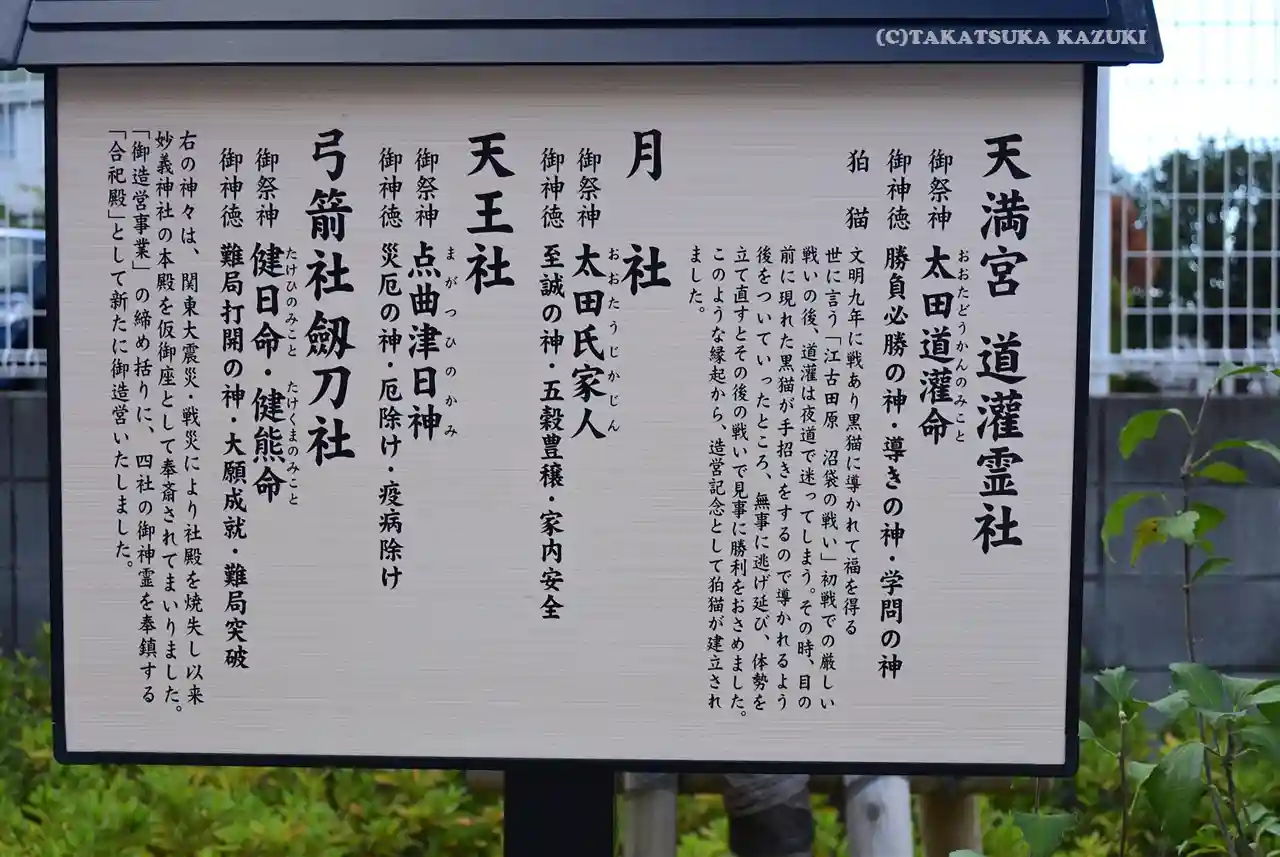 (C)TAKATSUKA KAZUKI
天満宮 道灌霊社
御祭神 太田道灌命
おおたどうかんのみこと
御神徳 勝負必勝の神・導きの神・学問の神
狛猫 文明九年に戦あり黒猫に導かれて福を得る
世に言う「江古田原 沼袋の戦い」初戦での厳しい
戦いの後、道灌は夜道で迷ってしまう。その時、目の
前に現れた黒猫が手招きをするので導かれるよう
後をついていったところ、無事に逃げ延び、体勢を
立て直すとその後の戦いで見事に勝利をおさめました。
このような縁起から、造営記念として狛猫が建立され
ました。
月社
御祭神 太田氏家人
おおたうじかじん
御神徳 至誠の神・五穀豊穣・家内安全
天王社
御祭神 点曲津日神
まがつひのかみ
御神徳 災厄の神・厄除け・疫病除け
弓箭社劔刀社
御祭神 健日命・健熊命
たけひのみこと たけくまのみこと
御神徳 難局打開の神・大願成就・難局突破
右の神々は、関東大震災・戦災により社殿を焼失し以来
妙義神社の本殿を仮御座として奉斎されてまいりました。
「御造営事業」の締め括りに、四社の御神霊を奉鎮する
「合祀殿」として新たに御造営いたしました。